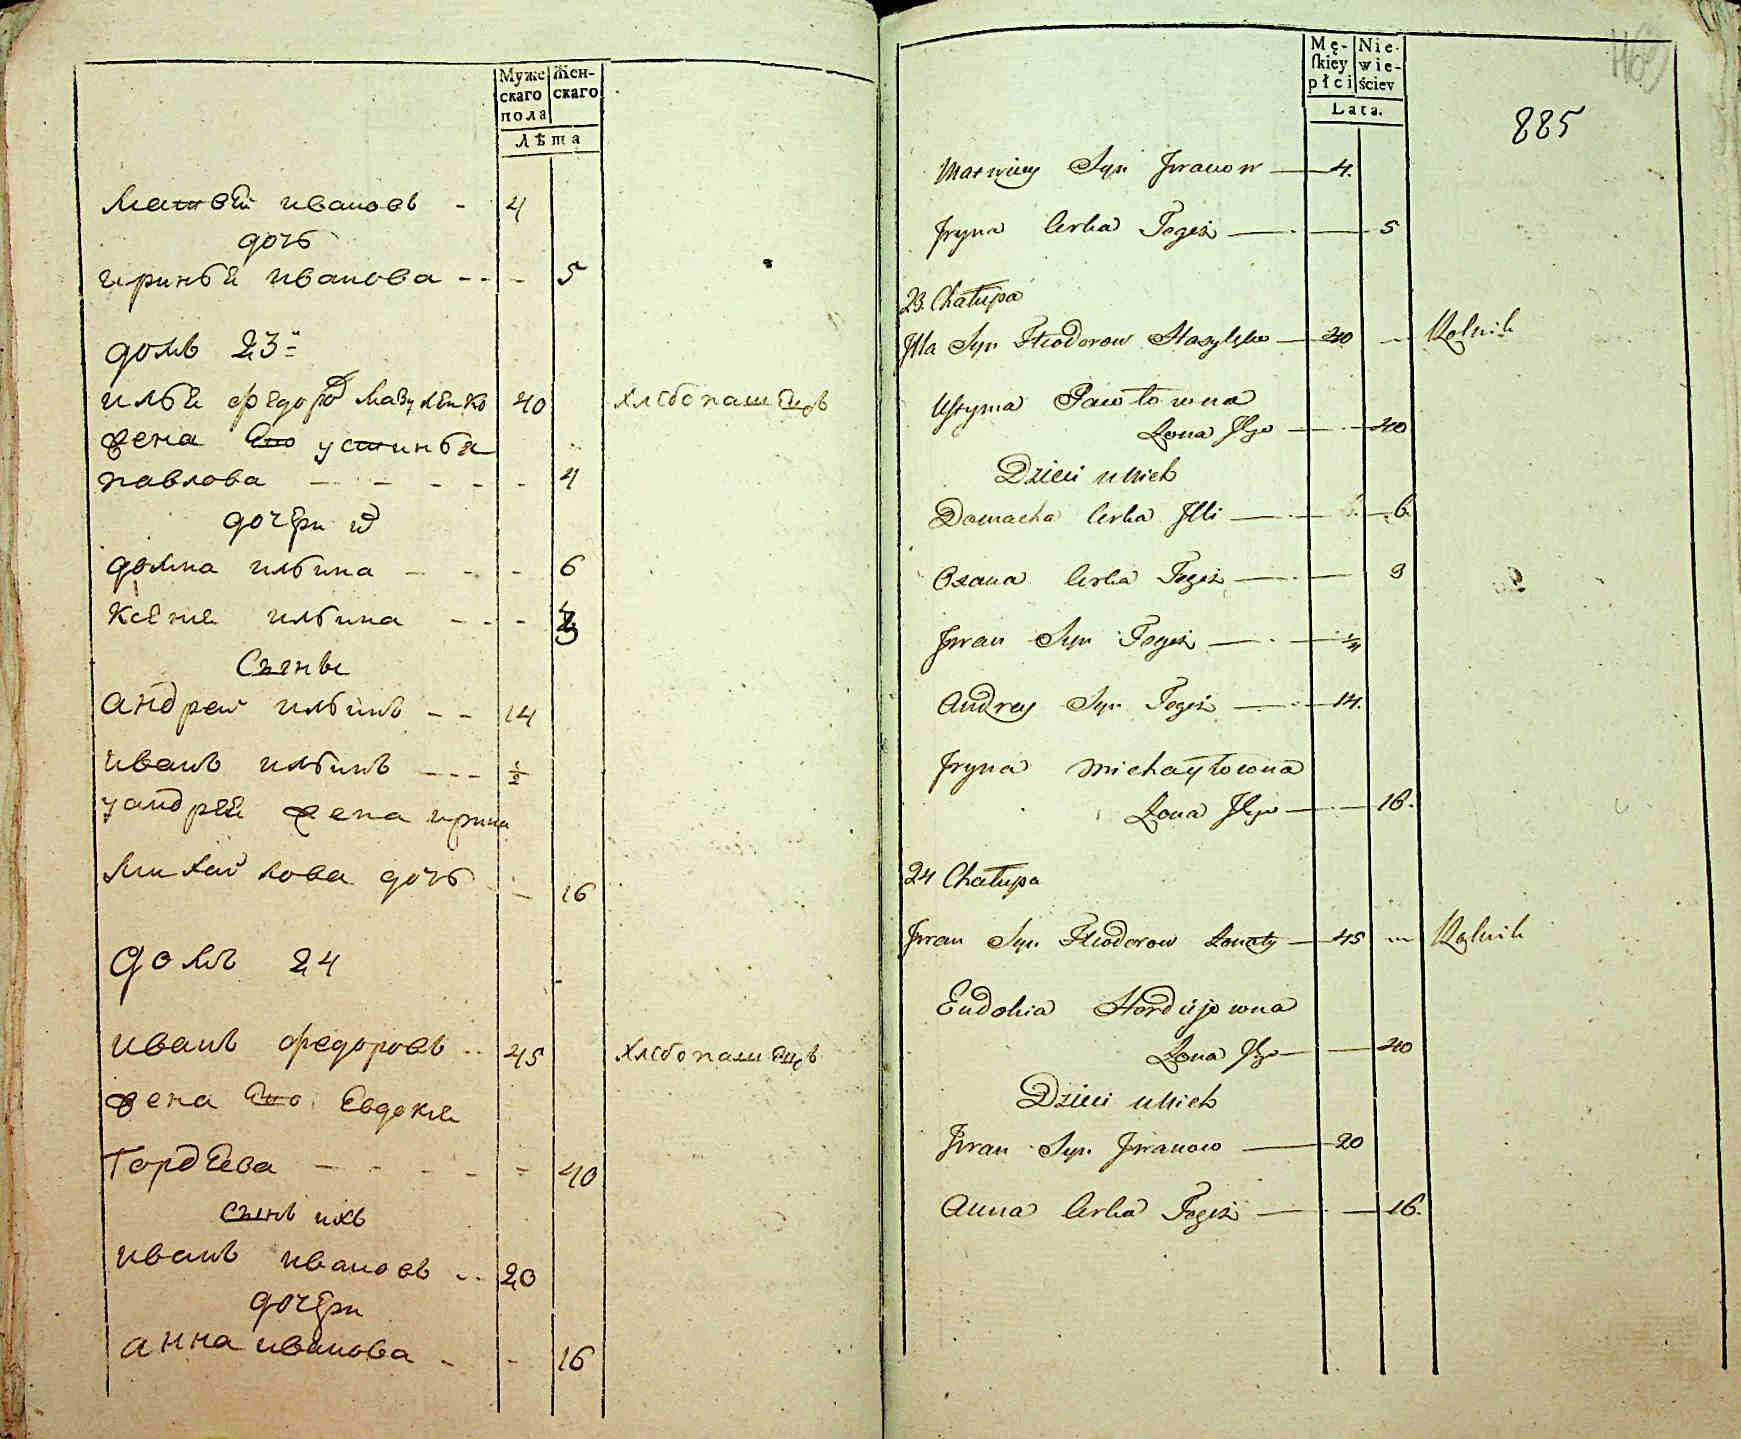 Муже
скаго
пола
Жен-
скаго
Лѣта
Матвей ивановъ - 4
дочь
ириньѧ иванова - - - 5
домъ 23й
ильѧ федоро 40 хлебопашецъ
жена Его устиньѧ
павлова - - - - - 4
дочери их
домна ильина - - - 6
Ксениѧ ильина - - - 3
Сыны
андреи ильинъ - - 14
иванъ ильинъ - - - ½
у андреѧ жена ирина
михаилова дочь - 16
Домъ 24
иванъ федоровъ - - 45 хлебопашецъ
жена Его Евдокиѧ
Гордѣева - - - - - 40
сынъ ихъ
иванъ ивановъ - - 20
дочери
анна иванова - - 16
Mę-
skiey
płci
Nie-
wie-
ściey
Lata.
885
Matwiey Syn Iwanow — 4.
Iryna Corka Tegoż — 5
23. Chałupa
Illa Syn Fteodorow — 40 — Rolnik
Ustyma Pawłowna
Żona Jego — 40
Dzieci u Nich
Domacha Corka Illi — 6.
Oxana Corka Tegoż — 3
Iwan Syn Tegoż — ½
Andrey Syn Tegoż — 14.
Iryna Michayłowna
Żona Jego — 16.
24 Chałupa
Iwan Syn Fteodorow — 45 — Rolnik
Eudokia Hordiejowna
Żona Jego — 40
Dzieci u Nich
Iwan Syn Iwanow — 20
Anna Corka Tegoż — 16.